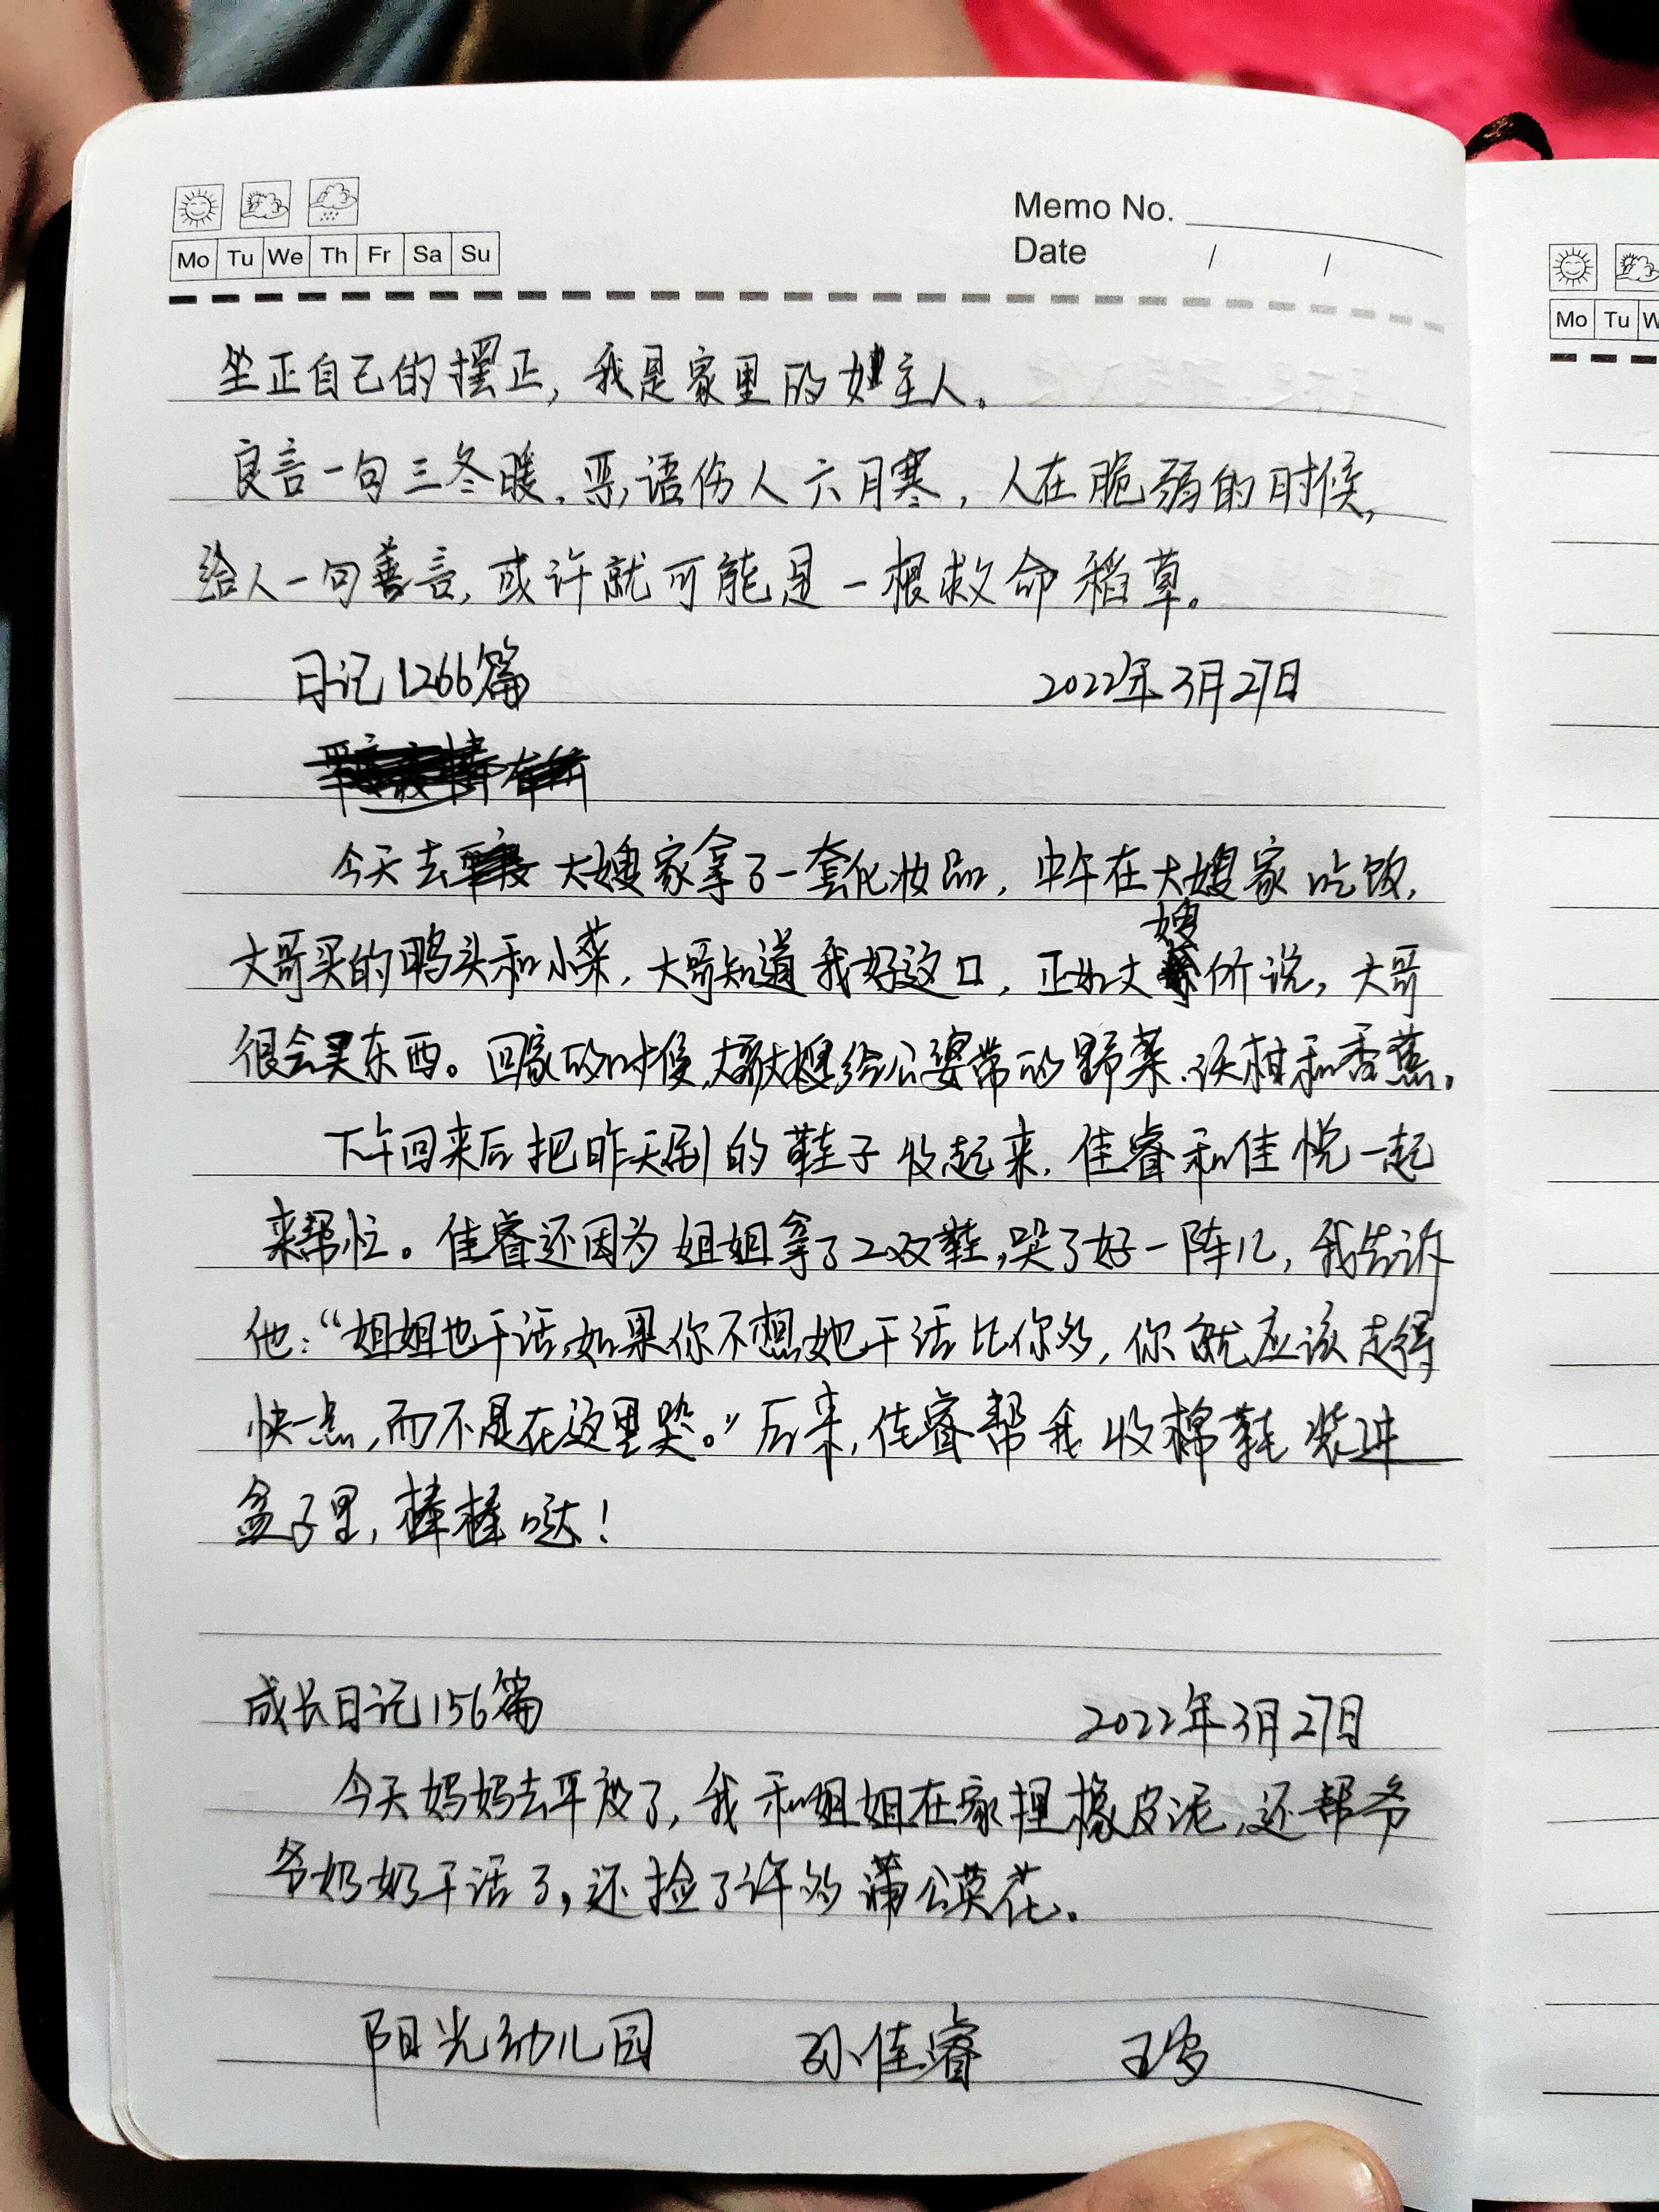 Memo No.
Mo Tu We Th Fr Sa Su
Date / /
坐正自己的摆正，我是家里的女主人。
良言一句三冬暖，恶语伤人六月寒，人在脆弱的时候，
给人一句善言，或许就可能是一根救命稻草。
日记1266篇 2022年3月27日
今天去大嫂家拿了一套化妆品，中午在大嫂家吃饭，
大哥买的鸭头和小菜，大哥知道我好这口，正如大嫂们说，大哥
很会买东西。回家的时候，大哥大嫂给公婆带的野菜、和香蕉。
下午回来后把昨天刷的鞋子收起来，佳睿和佳悦一起
来帮忙。佳睿还因为姐姐拿了2双鞋，哭了好一阵儿，我告诉
他：“姐姐也干活，如果你不想她干活比你多，你就应该走得
快一点，而不是在这里哭。”后来，佳睿帮我收棉鞋装进
盒子里，棒棒哒！
成长日记156篇 2022年3月27日
今天妈妈去平度了，我和姐姐在家捏橡皮泥，还帮爷
爷奶奶干活了，还捡了许多蒲公英花。
阳光幼儿园 孙佳睿
Mo Tu